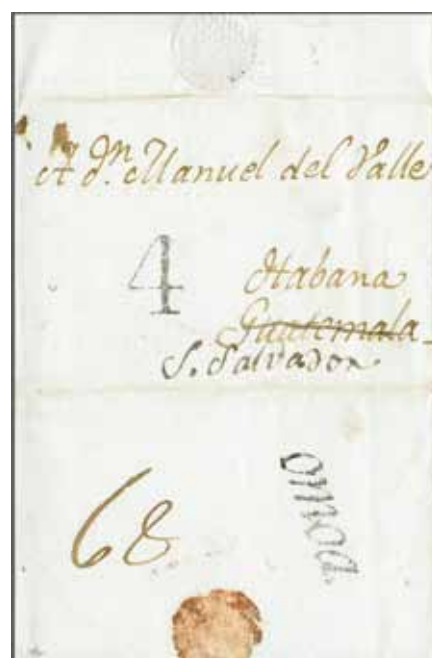 A Dn. Manuel del Valle
4
Habana
Guatemala
S. Salvador.
68
omoa.